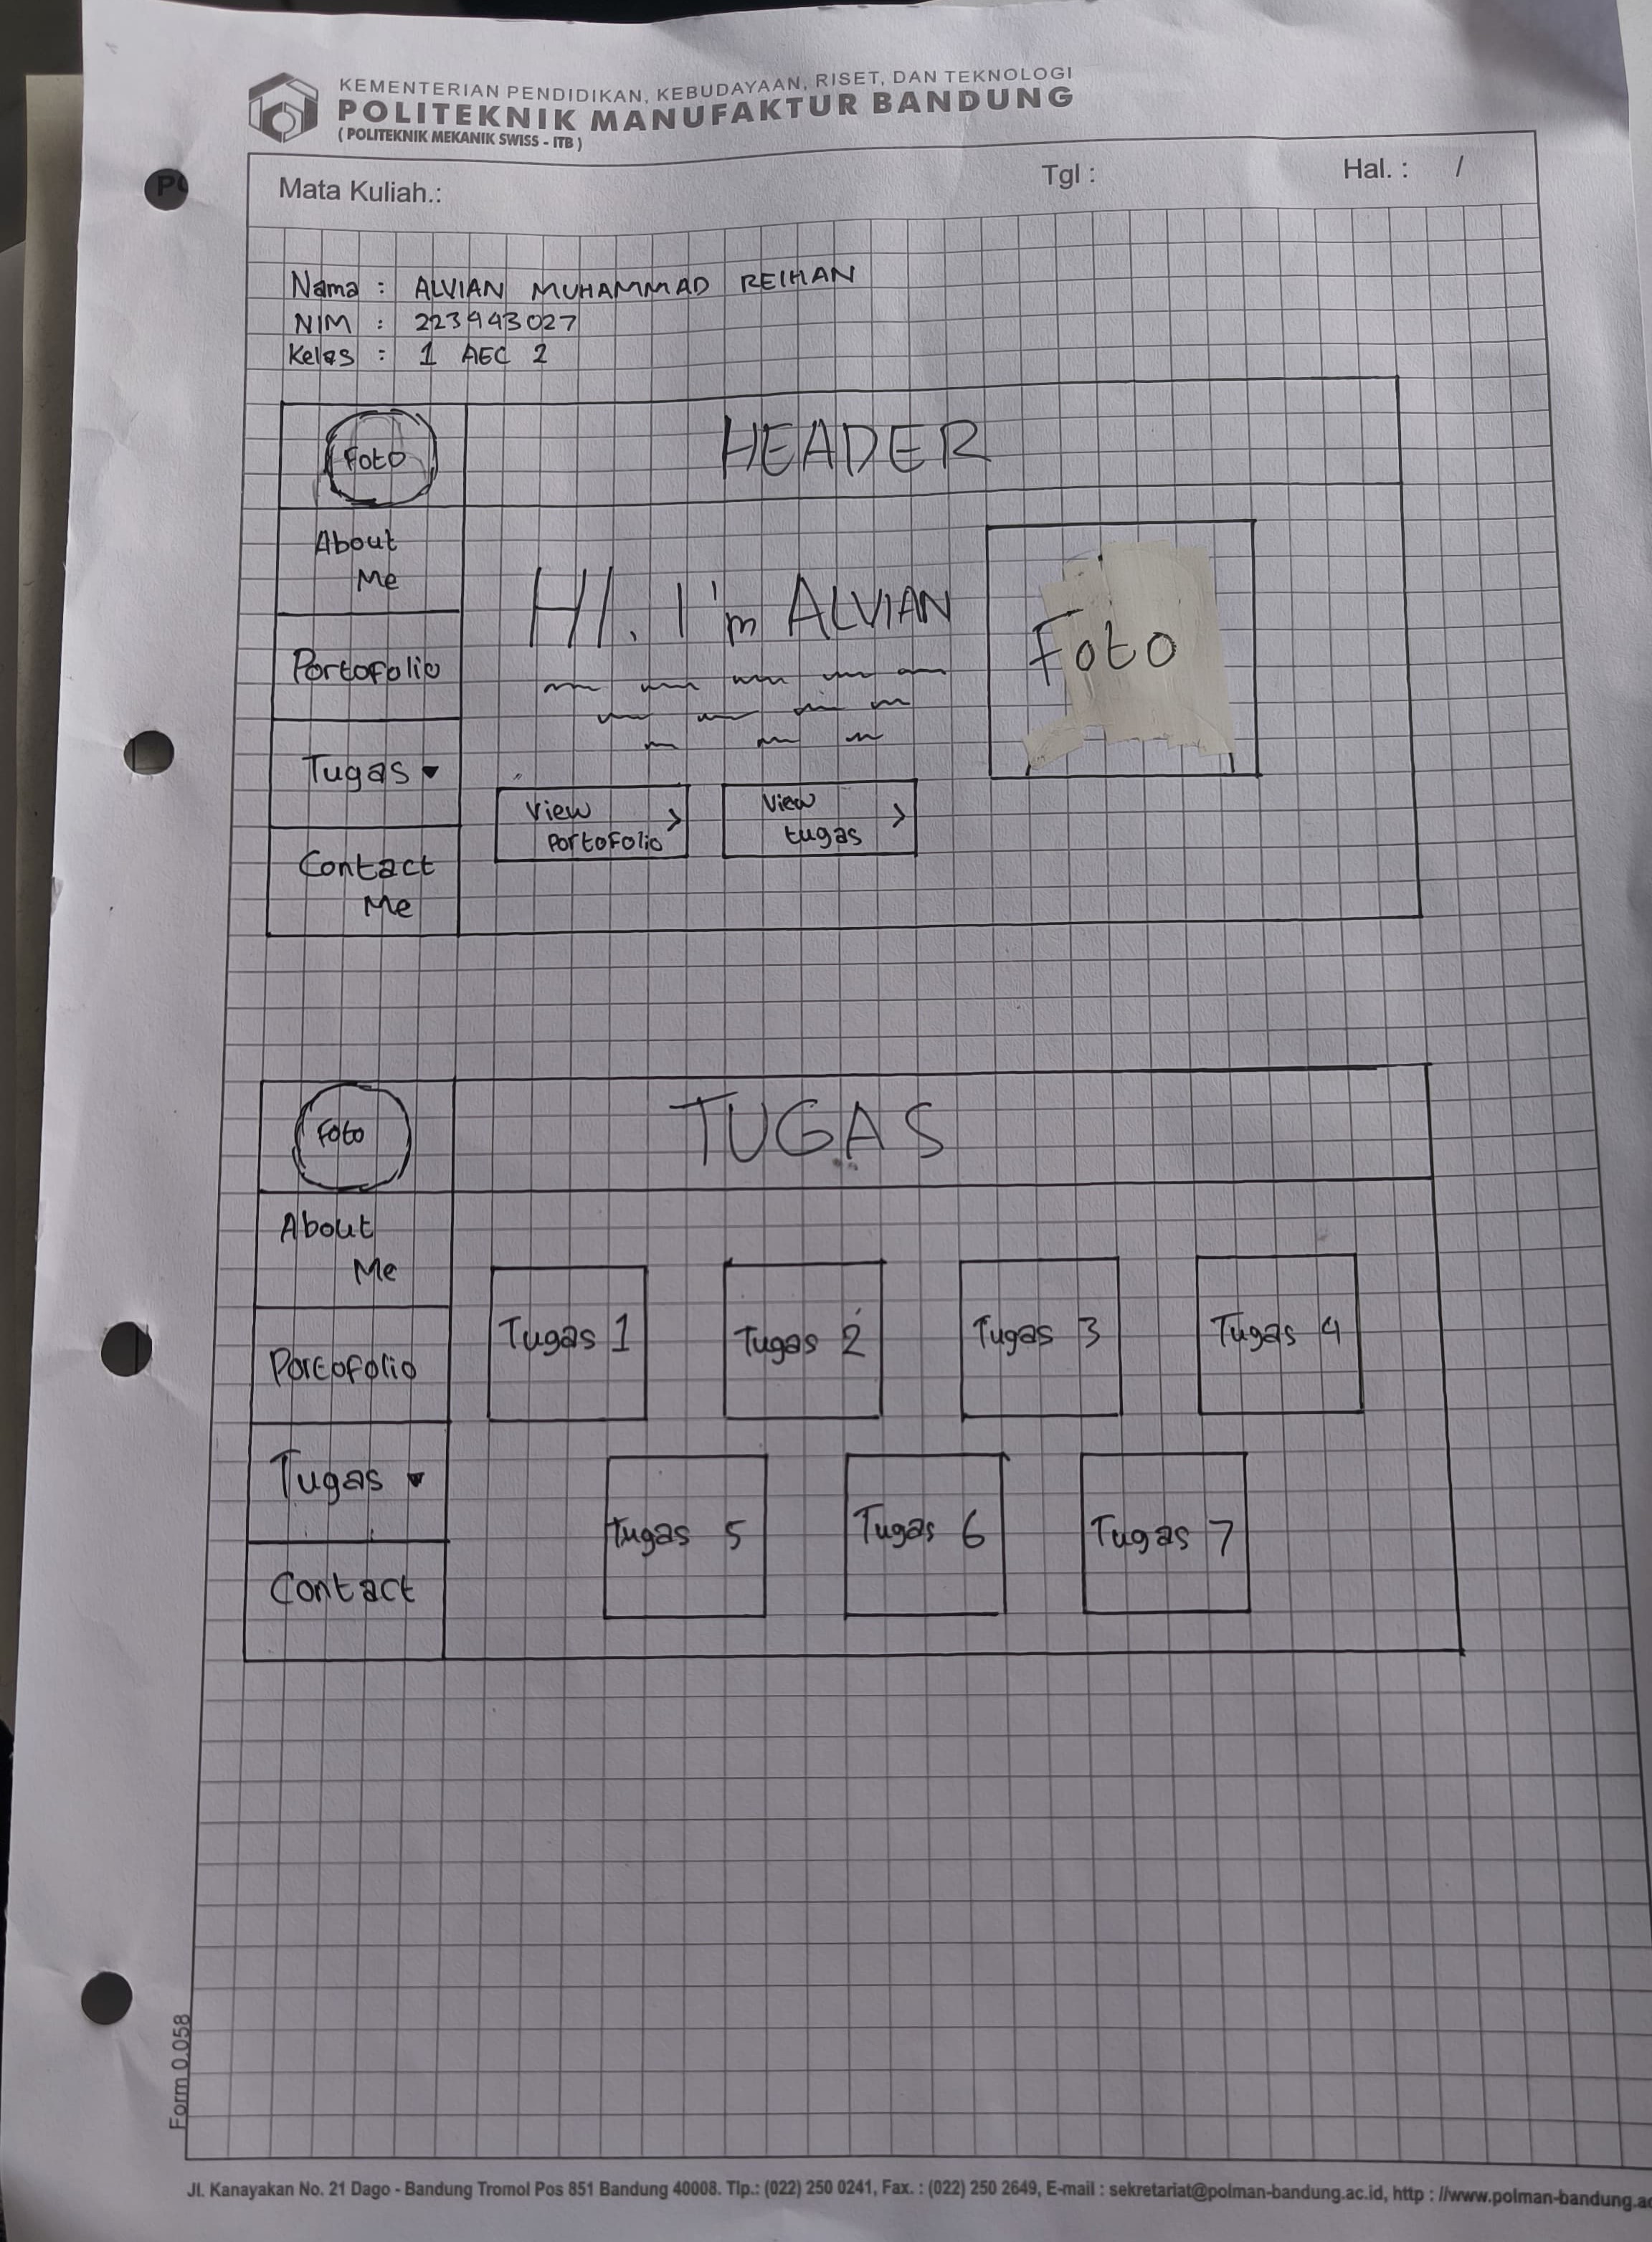 KEMENTERIAN PENDIDIKAN, KEBUDAYAAN, RISET, DAN TEKNOLOGI
POLITEKNIK MANUFAKTUR BANDUNG
( POLITEKNIK MEKANIK SWISS - ITB )
Mata Kuliah.:
Tgl :
Hal. : /
Nama : ALVIAN MUHAMMAD REIHAN
NIM : 223443027
Kelas : 1 AEC 2
Foto
HEADER
About
Me
Portofolio
Tugas
Contact
Me
HI. I'm ALVIAN
Foto
View
Portofolio >
View
tugas >
Foto
TUGAS
About
Me
Portofolio
Tugas
Contact
Tugas 1
Tugas 2
Tugas 3
Tugas 4
Tugas 5
Tugas 6
Tugas 7
Form 0.058
Jl. Kanayakan No. 21 Dago - Bandung Tromol Pos 851 Bandung 40008. Tlp.: (022) 250 0241, Fax. : (022) 250 2649, E-mail : sekretariat@polman-bandung.ac.id, http : //www.polman-bandung.ac